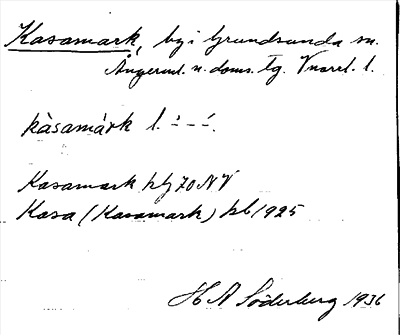 Kasamark, by i Grundsunda sn.
Ångerml. n. doms. tg. Vnorrl. l.
kàsamárk l. ∸ – ∸.
Kasamark hbj 70 NV
Kasa (Kasamark) kb 1925
H A Söderberg 1936